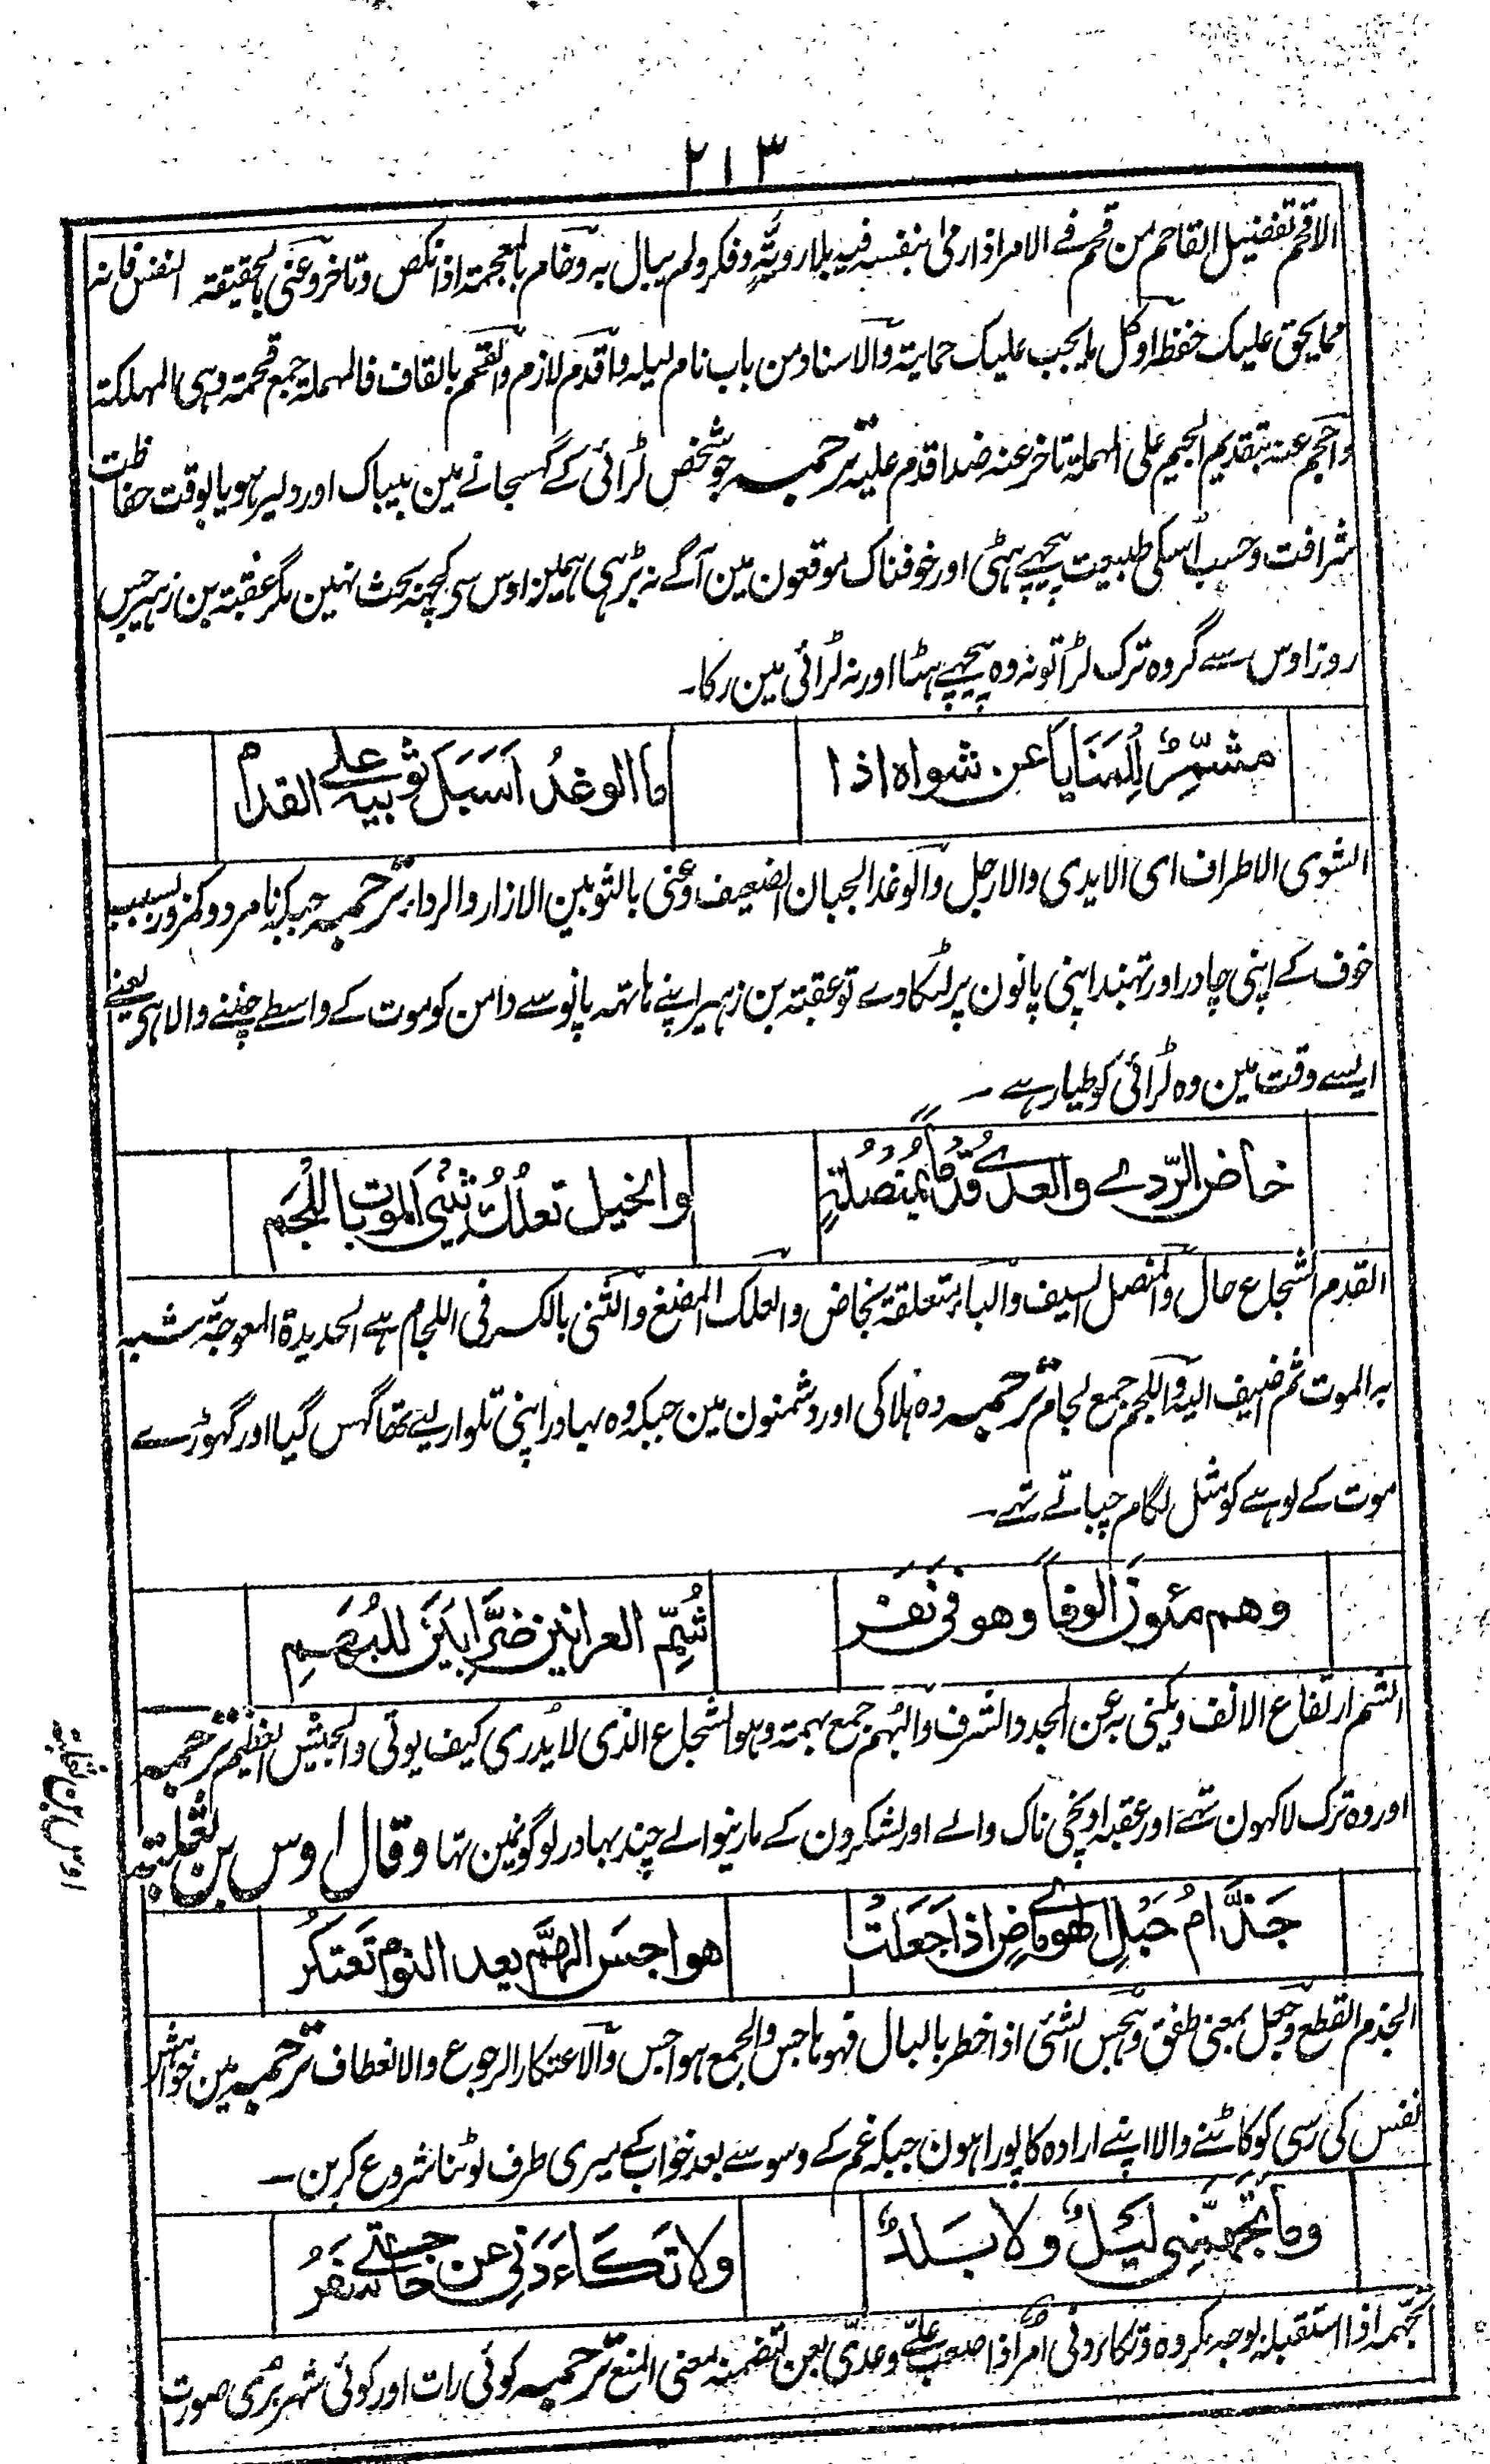 ۲۱۳
الاقحم تفضیل القاحم من قحم فے الامر اذا رمی بنفسہ فیہ بلا رویّۃٍ و فکر ولم یبال بہ وخام بالمعجمۃ اذا نکص وتاخر وعنی بالحقیقۃ النفس فانہ
مما یحق علیک حفظہ او کل ما یجب علیک حمایتہ والاسناد من باب نام لیلہ واقدم لازم والقحم بالقاف فالمہملۃ جمع قحمۃ وہی المہلکۃ
واحجم عنہ بتقدیم الجیم علی المہملۃ تاخر عنہ ضد اقدم علیہ ترحمبہ جو شخص لڑائی کے گہسجانے مین بیباک اور دلیر ہو یا بوقت حفاظت
شرافت وحسب اسکی طبیعت پیچہے ہٹی اور خوفناک موقعون مین آگے نہ بڑہی ہمین اوس سی کچہہ بحث نہین مگر عقبۃ بن زہیر جس
روز اوس سے گروہ ترک لڑا تو نہ وہ پیچہے ہٹا اور نہ لڑائی مین رکا۔
مشمِّرٌ لِلمَنَایا عن شواہ اذا
ما الوغدُ اَسَبَلَ ثوبیہ علے القدام
الشوی الاطراف ای الایدی والارجل والوغد الجبان الضعیف وعنی بالثوبین الازار والرداء ترجمبہ جبکہ نامرد و کمزور بسبب
خوف کے اپنی چادر اور تہبند اپنی پانون پر لٹکاوے تو عقبۃ بن زہیر اپنے ہاتہہ پانو سے دامن کو موت کے واسطے چننے والا ہی یعنے
ایسے وقت مین وہ لڑائی کو طیار ہے ۔
خاض الرّدے والعدے قُدُماً بِمُنصُلہٖ
والخیل تعلُکُ ثِنْیَ الموت باللُجَم
القدم الشجاع حال والمنصل السیف والباء متعلقۃ بخاض والعلک المضغ والثنی بالکسر فی اللجام ہے الحدیدۃ المعوجّۃ شبہ
بہ الموت ثم اضیف الیہ واللجم جمع لجام ترجمبہ وہ ہلاکی اور دشمنون مین جبکہ وہ بہادر اپنی تلوار لیے تھا گہس گیا اور گہوڑے
موت کے لوہے کو مثل لگام چباتے تہے۔
وھم مئونَ الوفاً وھو فی نَفَرٍ
شُمِّ العرانین ضَرَّابِینَ للبُھَمِ
الشم ارتفاع الانف ویکنی بہ عن المجد والشرف والبہم جمع بہمۃ وہو الشجاع الذی لا یدری کیف یوتی والجیش العظیم ترجمبہ
اور وہ ترک لاکہون تہے اور عقبہ اونچی ناک والے اور لشکرون کے مارنیوالے چند بہادر لوگونمین تہا وقال اوس بن ثعلبۃ
اوس بن ثعلبۃ
جَذَّامُ حَبْلِ الھوے ماضٍ اذا جَعَلَتْ
ھواجسَ الھمَّ بعد النوم تَعتکرُ
الجذم القطع وجعل بمعنی طفق وہجس الشئی اذا خطر بالبال فہو ہاجس والجمع ہواجس والاعتکار الرجوع والانعطاف ترجمبہ مین خواہش
نفس کی رسی کو کاٹنے والا اپنے ارادہ کا پورا ہون جبکہ غم کے وسوسے بعد خواب کے میری طرف لوٹنا شروع کرین ۔
وما تجھّمَنِی لیلٌ ولا بَلَدٌ
ولا تَکَاءَدَنی عن حاجتے سَفَرُ
تجہمہ اذا استقبلہ بوجہ مکروہ وتکاءدنی امرٌ اذا صعب علیّ وعدّی بعن لتضمنہ معنی المنع ترجمبہ کوئی رات اور کوئی شہر بڑہی صورت